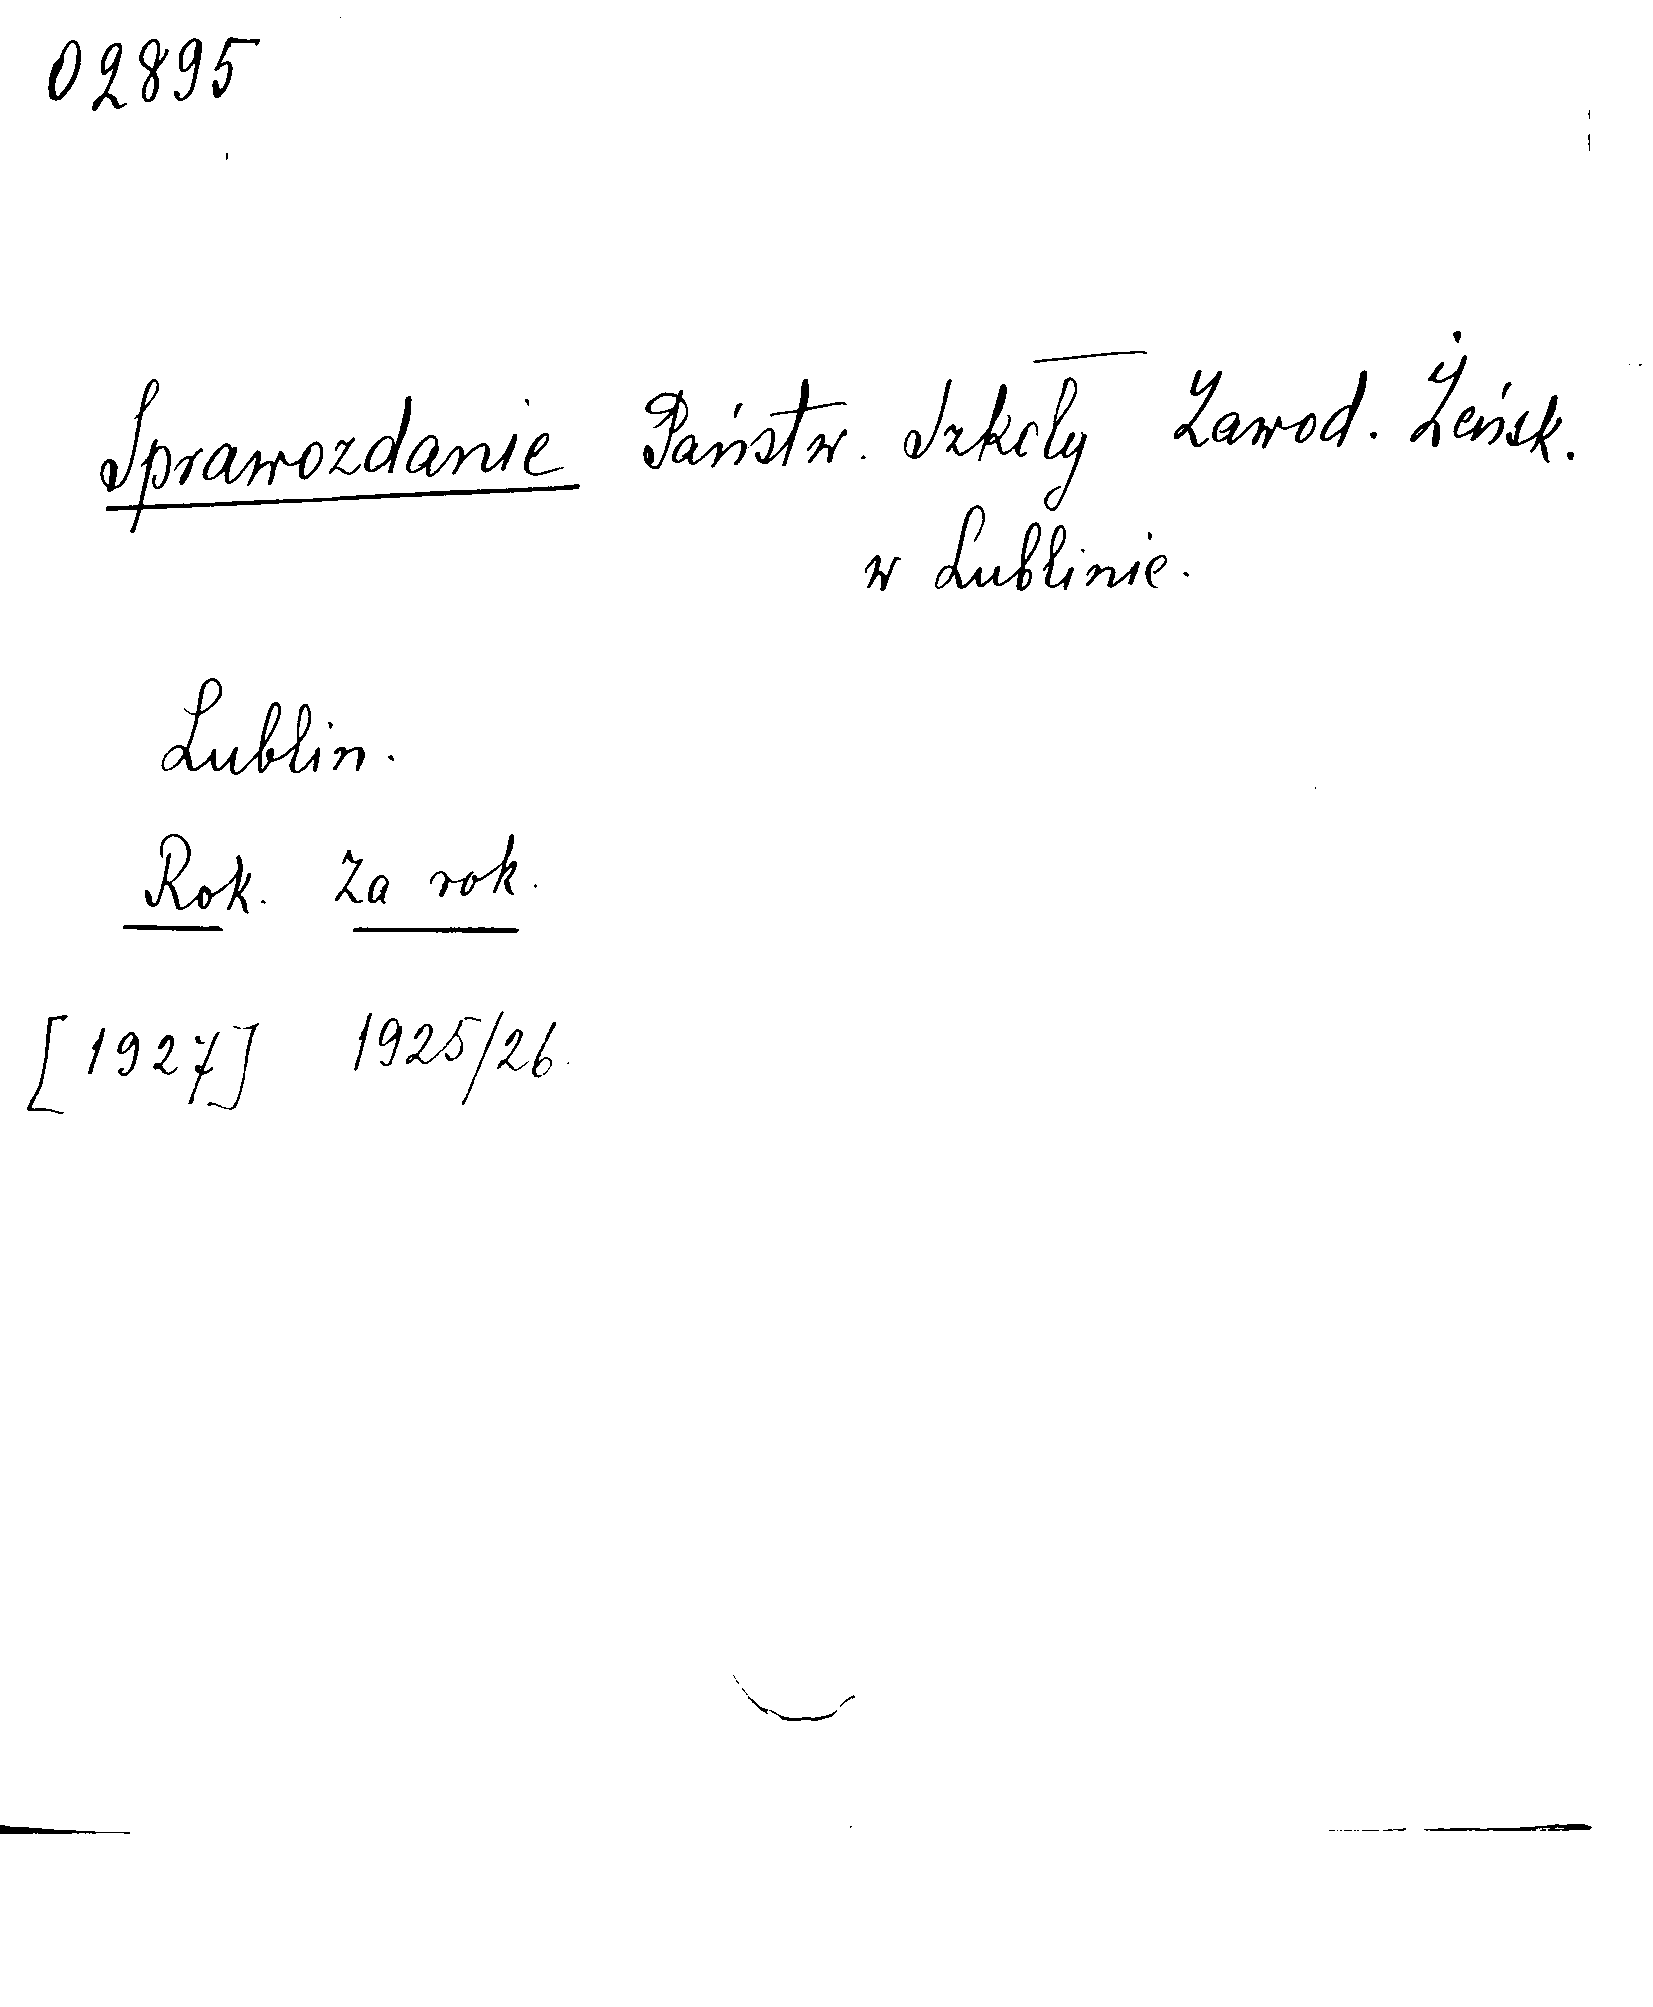 02895
Sprawozdanie Państw. Szkoły Zawod. Żeńsk.
w Lublinie.
Lublin.
Rok. Za rok.
[1927] 1925/26.